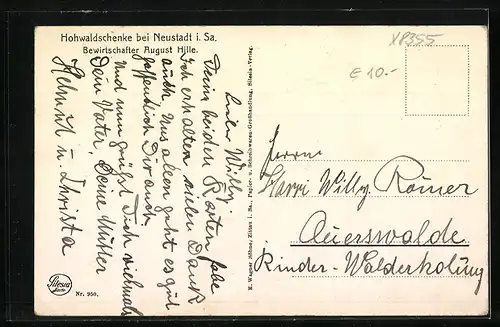 Hohwaldschenke bei Neustadt i. Sa.
Bewirtschafter August Hille.
X8355
€ 10.-
Lieber Willy.
Deine beiden Karten habe
ich erhalten vielen Dank
auch. Uns allen geht es gut
hoffentlich Dir auch.
Und nun grüßt Dich vielmals
Dein Vater, Deine Mutter
Helmut u. Christa
Herrn
Harri Willy Römer
Auerswalde
Kinder-Walderholung
R. Wagner Söhne, Zittau i. Sa., Papier- u. Schreibwaren-Großhandlung, Silesia-Verlag.
Silesia
Karte
Nr. 950.